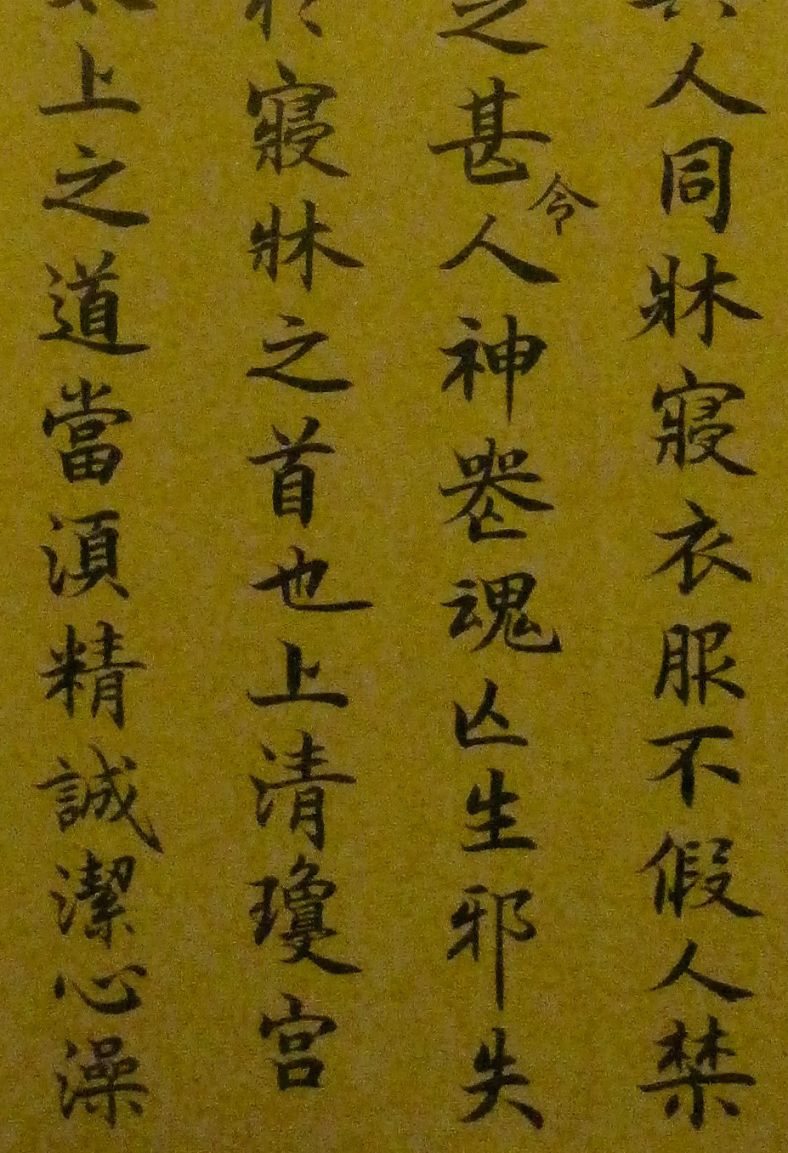 人同牀寢衣服不假人禁
之甚令人神喪魂亡生邪失
寢牀之首也上清瓊宮
上之道當湏精誠潔心澡